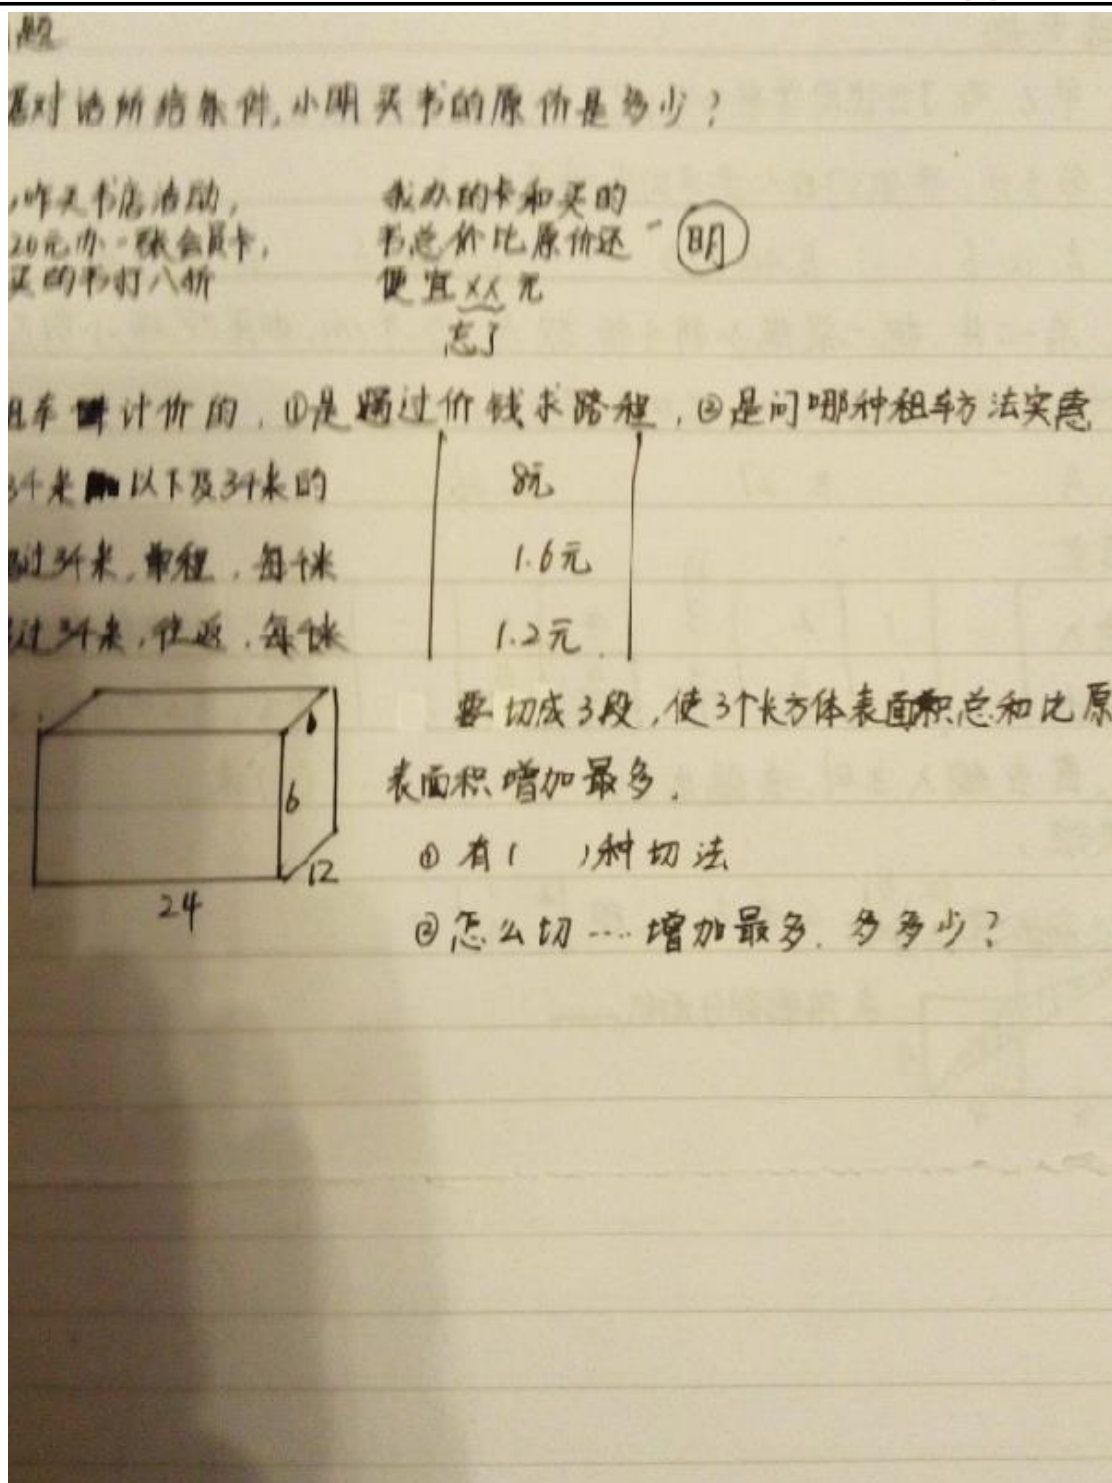 题
对话所给条件,小明买书的原价是多少?
,昨天书店活动,
20元办一张会员卡,
买的书打八折
我办的卡和买的
书总价比原价还
便宜xx元
忘了
明
租车计价的,①是通过价钱求路程,②是问哪种租车方法实惠
3千米以下及3千米的 8元
过3千米,单程,每千米 1.6元
过3千米,往返,每千米 1.2元
要切成3段,使3个长方体表面积总和比原
表面积增加最多.
6
12
24
①有( )种切法
②怎么切····增加最多.多多少?